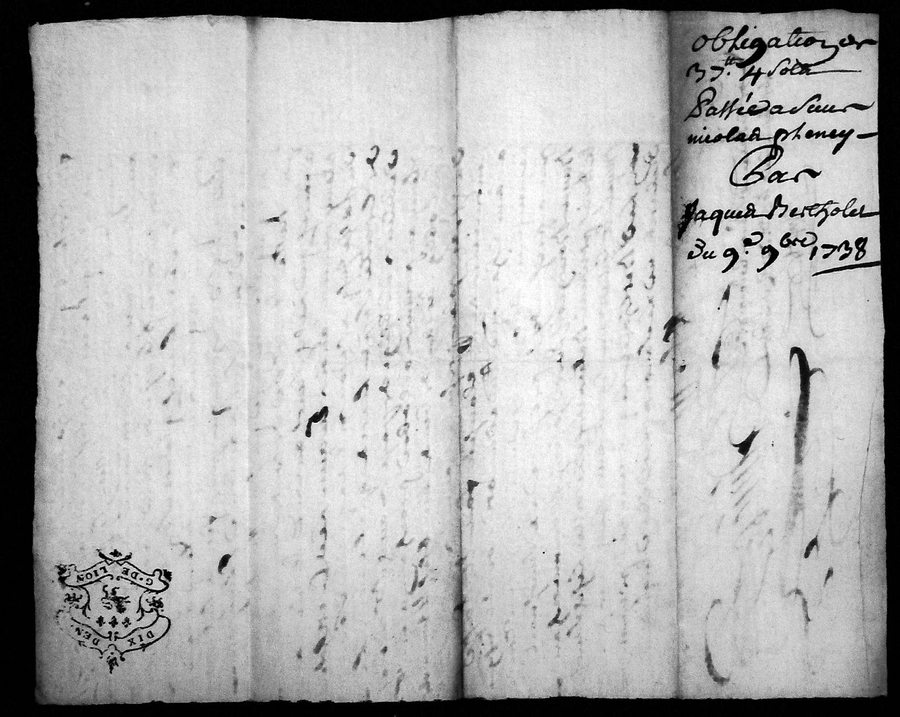 Obligation de
37tt. 4 sols
Passée a sieur
nicolas pheney
Par
Jaques Bertholet
du 9e. 9bre 1738
G. DE LION
DIX DEN